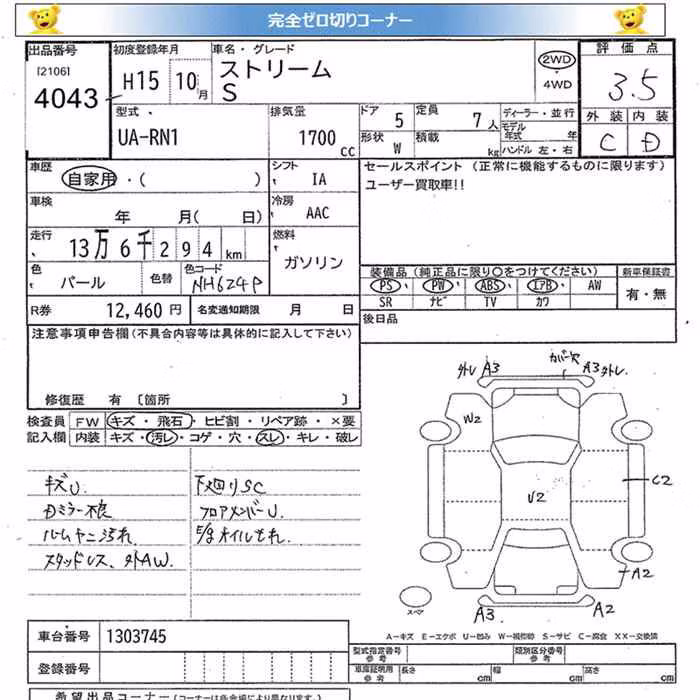 完全ゼロ切りコーナー
出品番号 初度登録年月 車名・グレード 評価点
[2106] 4043 H15 10月 ストリーム S 2WD・4WD 3.5
型式 UA-RN1 排気量 1700 CC
ドア 5 定員 7人 ディーラー・並行
形状 W 積載 kg モデル年式 年 ハンドル 左・右
外装 内装
C D
車歴 自家用・( ) シフト IA
セールスポイント (正常に機能するものに限ります)
ユーザー買取車!!
車検 年 月( 日) 冷房 AAC
走行 13万6千294km 燃料 ガソリン
色 パール 色替 色コード NH624P
装備品(純正品に限り○をつけてください) 新車保証書
PS・PW・ABS・エアB・AW 有・無
SR ナビ TV カワ
R券 12,460円 名変通知期限 月 日
後日品
注意事項申告欄(不具合内容等は具体的に記入して下さい)
修復歴 有 [箇所 ]
検査員記入欄 FW キズ・飛石・ヒビ割・リペア跡・×要
内装 キズ・汚レ・コゲ・穴・スレ・キレ・破レ
キズU 下廻りSC
Dミラー不良 フロアメンバーU
ルームヤニ汚れ E/gオイルもれ
スタッドレス、外AW
外レ A3 カバー欠 A3 外レ
W2
U2
C2
A2
スペア
A3 A2
A-キズ E-エクボ U-凹み W-補修跡 S-サビ C-腐食 XX-交換済
車台番号 1303745
登録番号
型式指定番号 参考 類別区分番号 参考
車庫証明用 参考 長さ cm 幅 cm 高さ cm
希望出品コーナー(コーナーは各会場により異なります)